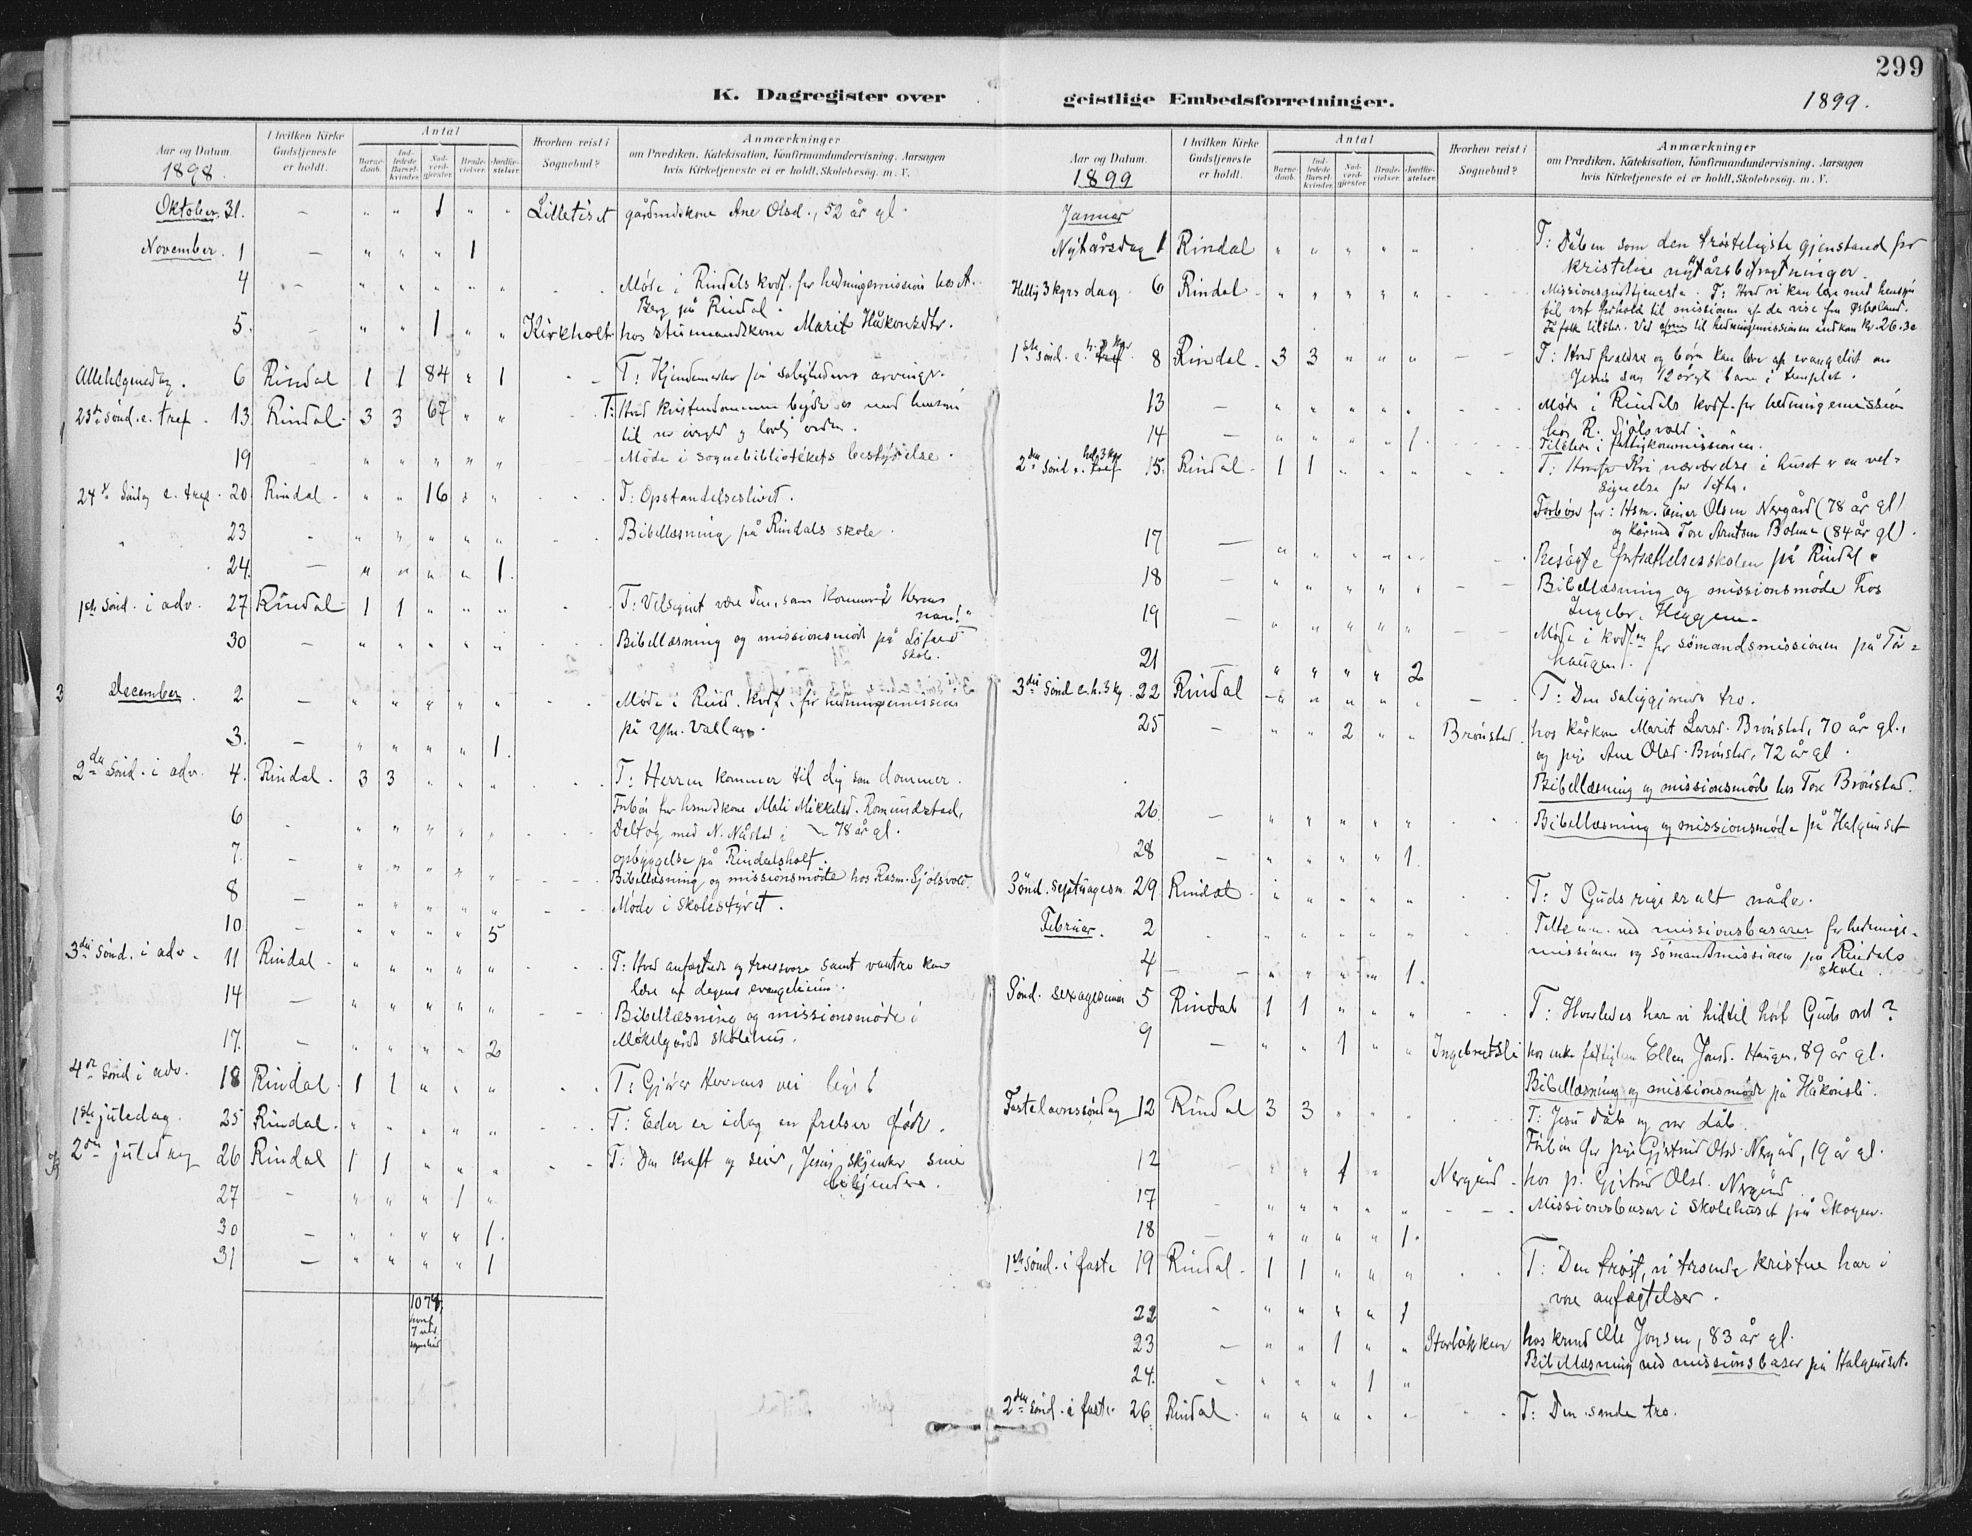 299
K. Dagregister over geistlige Embedsforretninger.
1899.
Aar og Datum.
1898.
I hvilken Kirke Gudstjeneste er holdt.
Antal
Barnedaab.
Indledede Barselkvinder.
Nadverdgjester.
Brudevielser.
Jordfæstelser.
Hvorhen reist i Sognebud?
Anmærkninger
om Prædiken, Katekisation, Konfirmandundervisning, Aarsagen
hvis Kirketjeneste ei er holdt, Skolebesøg. m. V.
Oktober 31. – " " 1 " " Lilletiset gårdmdskone Ane Olsd., 52 år gl.
November. 1 – " " " 1
4 Møde i Rindals kvdf. for hedningemission hos A.
Berg på Rindal.
5. – " " 1 " " Kirkholt hos stuemandskone Marit Håkonsdtr.
Allehelgensdag. 6 Rindal 1 1 84 " 1 T: Kjendemerker på salighedens arvinger.
23de sønd. e. tref. 13. Rindal 3 3 67 " " T: Hvad kristendommen byder os med hensyn
til
19 – " " " " " Møde i sognebibliotekets bestyrelse.
24de Søndag e. tref. 20 Rindal " " 16 " " T: Opstandelseslivet.
23 Bibellæsning på Rindals skole.
24. – " " " " 1.
1ste sønd. i adv. 27 Rindal 1 1 " " " T: Velsignet være den, som kommer i Herrens
navn!"
30 – " " " " " Bibellæsning og missionsmøde på Løfald
skole.
December. 2 – " " " " " Møde i Rind. kvdf. for hedningemission
på
3. – " " " " 1.
2den Sønd. i adv. 4. Rindal. 3 3 " " " T: Herren kommer til dig som dommer.
Forbøn for husmdskone Mali Mikkelsd. Romundstad,
6 Deltog med N. i 78 år gl.
7. – opbyggelse på Rindalsholt.
Bibellæsning og missionsmøde hos Rasm. Sjølsvold.
8 – Møde i skolestyret.
10 – " " " " 5
3die sønd. i adv. 11 Rindal " " " " " T: Hvad anfægtede og troessvage samt vantro kan
lære af dagens evangelium.
14 – " " " " " Bibellæsning og missionsmøde i
Møkelgårds skolehus.
17. – " " " " 2
4de sønd i adv. 18 Rindal 1 1 " " " T: Gjører Herrens vei
1ste juledag. 25 Rindal. " " " " " T: Eder er idag en frelser født.
2den juledag 26 Rindal 1 1 " " " T: Den kraft og seier, Jesus skjenker sine
bekjendere.
27 – " " " 1 "
30 – " " " " 1.
31 – " " " " 1
1078,
Aar og Datum.
1899
I hvilken Kirke Gudstjeneste er holdt.
Antal
Barnedaab.
Indledede Barselkvinder.
Nadverdgjester.
Brudevielser.
Jordfæstelser.
Hvorhen reist i Sognebud?
Anmærkninger
om Prædiken, Katekisation, Konfirmandundervisning, Aarsagen
hvis Kirketjeneste ei er holdt, Skolebesøg. m. V.
Januar
Nytårsdag 1 Rindal " " " " " T: Dåben som den trøsteligste gjenstand for
kristelige nytårsbetragtninger.
Hellig 3 kgrs dag. 6 Rindal " " " " " Missionsgudstjeneste. T: Hvad vi kan lære med hensyn
til vort forhold til missionen af de vise fra Østerland.
Få folk tilstede. Ved til hedningemissionen indkom Kr. 26.30
1ste sønd. e. h. 3 kgr. 8 Rindal 3 3 " " " – – T: Hvad forældre og børn kan lære af evangeliet om
Jesus som 12 årigt barn i templet.
13 – " " " " " Møde i Rindals kvdf. for hedningemission
hos R. Sjølsvold.
14 – " " " " 1. Tilstede i fattigkommissionen.
2den Sønd e. hel. 3 kgr 15. Rindal. 1 1 " " " T: Kri nærværelse i huset er en velsignelse
for dette.
Forbøn for: Hsm. Einar Olsen Nergård (78 år gl)
og kårmd Tore Arntsen Bolme (84 år gl).
17 – Besøgte fortsættelsesskolen på Rindal.
18 – Bibellæsning og missionsmøde hos
Ingebr. Heggem.
19 – Møde i kvdf. for sømandsmissionen på Tørhaugen.
21 " " " " 2
3die Sønd e. h. 3 kg. 22 Rindal – " " " " " – T: Den saliggjørende tro.
25 – " " 2 " " Brønstad. hos kårkone Marit Larsd. Brønstad, 70 år gl.,
og pige Ane Olsd. Brønstad, 72 år gl.
Bibellæsning og missionsmøde hos Tore Brønstad.
26. – " " " " " Bibellæsning og missionsmøde på Halgunset
28 – " " " " 1.
Sønd. septuagesm. 29 Rindal " " " " " T: I Guds rige er alt nåde.
Februar. 2 Telte m.m. ved missionsbasarer for hedningemissionen
og sømandsmissionen på Rindals
skole.
4 – " " " " 1.
Sønd. sexagesima 5 Rindal 1 1 " " " T: Hvorledes har vi hidtil hørt Guds ord?
9 – " " 1 " " Ingebretsli hos enke fattiglem Ellen Jonsd. Haugen, 89 år gl.
Bibellæsning og missionsmøde på Håkonsli.
Fastelavnssøndag 12 Rindal 3 3 " " " T: Jesu dåb og vor dåb.
Forbøn for pige Gjertrud Olsd. Nergård, 19 år gl.
12 1 Nergård. hos p. Gjertrud Olsd. Nergård
17 – " " " " " – Missionsbasar i skolehuset på Skogen.
18 – " " " " 1.
1ste sønd. i faste 19 Rindal. 1 1 " " " T: Den trøst, vi troende kristne har i
vore anfægtelser.
22 " " " " " 1
23 – " " 1 " " Storløkken hos krmd Ole Jonsen, 83 år gl.
Bibellæsning ved missionsbasar på Halgunset.
24. " " " " 1 "
2den sønd. i faste 26 Rindal. " " " " " T: Den sande tro.